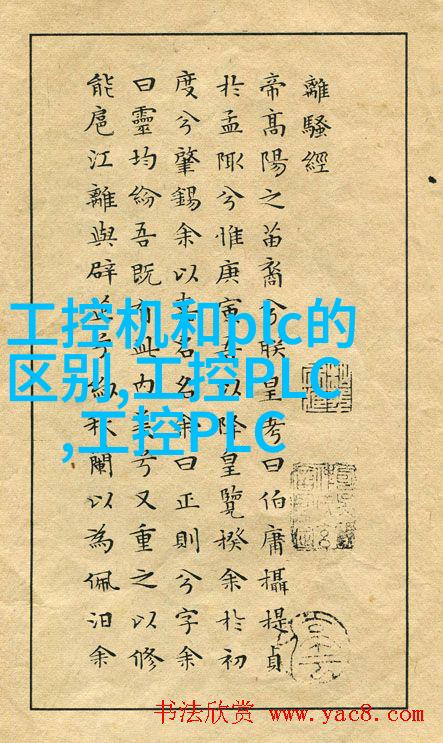 離騷經
帝高陽之苗裔兮朕皇考曰伯庸攝提貞
於孟陬兮惟庚寅吾以降皇覽揆余於初
度兮肇錫余以嘉名名余曰正則兮字余
曰靈均紛吾既有此内美兮又重之以修
能扈江離與辟芷兮紉秋蘭以為佩汨余
工控机和plc的
区别,工控PLC
,工控PLC
书法欣赏 www.yac8.com